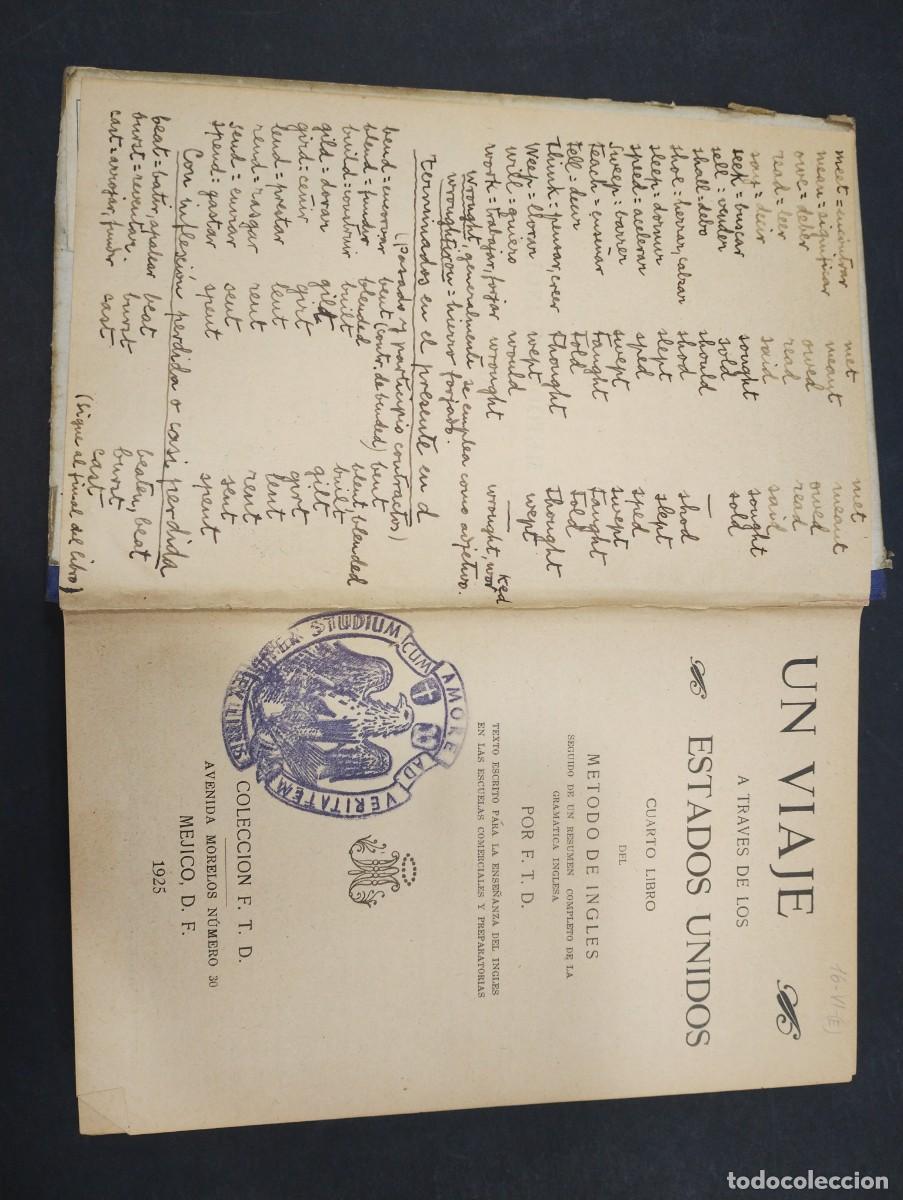 meet = encontrar met met
mean = significar meant meant
owe = deber owed owed
read = leer read read
say = decir said said
seek = buscar sought sought
sell = vender sold sold
shall = debo should —
shoe = herrar, calzar shod shod
sleep = dormir slept slept
speed = acelerar sped sped
sweep = barrer swept swept
teach = enseñar taught taught
tell = decir told told
think = pensar, creer thought thought
weep = llorar wept wept
will = quiero would —
work = trabajar, forjar wrought wrought, worked
wrought, generalmente se emplea como adjetivo.
wrought iron = hierro forjado.
terminados en el presente en d
(pasado y participio contractos)
bend = encorvar bent (contr. de bended) bent
blend = fundir blended blent, blended
build = construir built built
gild = dorar gilt gilt
gird = ceñir girt girt
lend = prestar lent lent
rend = rasgar rent rent
send = enviar sent sent
spend = gastar spent spent
Con inflexión perdida o casi perdida
beat = batir, apalear beat beaten, beat
burst = reventar. burst burst
cast = arrojar, fundir cast cast
(Sigue al final del libro)
16-VI-(E)
UN VIAJE
A TRAVES DE LOS
ESTADOS UNIDOS
CUARTO LIBRO
DEL
METODO DE INGLES
SEGUIDO DE UN RESUMEN COMPLETO DE LA
GRAMATICA INGLESA
POR F. T. D.
TEXTO ESCRITO PARA LA ENSEÑANZA DEL INGLES
EN LAS ESCUELAS COMERCIALES Y PREPARATORIAS
STUDIUM CUM AMORE AD VERITATEM
COLECCION F. T. D.
AVENIDA MORELOS NÚMERO 30
MEJICO, D. F.
1925
todocoleccion